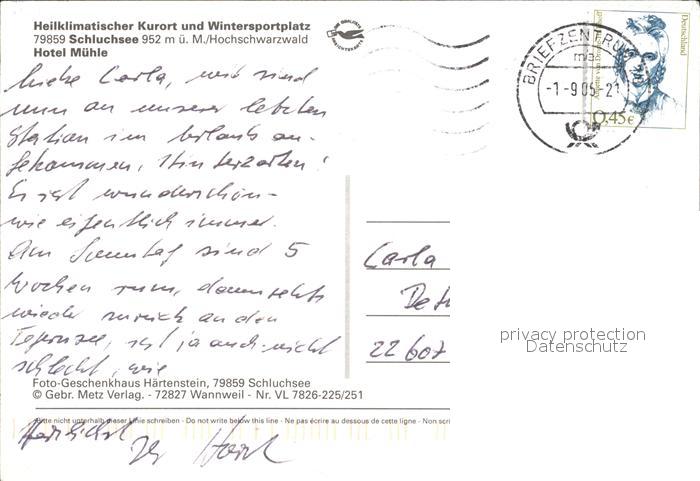 Heilklimatischer Kurort und Wintersportplatz
79859 Schluchsee 952 m ü. M./Hochschwarzwald
Hotel Mühle
Liebe Carla, wir sind
nun an unserer letzten
Station im Urlaub an-
gekommen, Hinterzarten!
Es ist wunderschön -
wie eigentlich immer.
Am Sonntag sind 5
Wochen rum, dann geht's
wieder zurück an den
Tegernsee, ist ja auch nicht
schlecht, wie
Foto-Geschenkhaus Härtenstein, 79859 Schluchsee
© Gebr. Metz Verlag. - 72827 Wannweil - Nr. VL 7826-225/251
Bitte nicht unterhalb dieser Linie schreiben - Do not write below this line - Ne pas écrire au dessous de cette ligne - Non scri
Herzlichst
Ihr Horst
BRIEFZENTRUM
-1.-9.05-21
Deutschland
0,45€
Carla
22607
privacy protection
Datenschutz